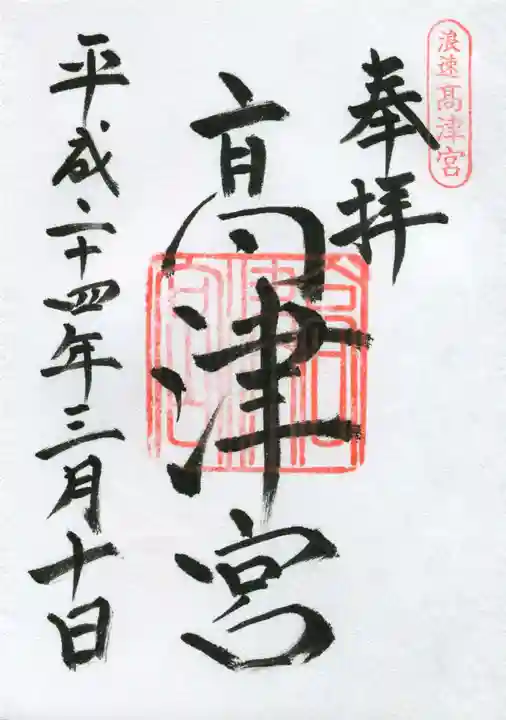 浪速高津宮
奉拝
高津宮
平成二十四年三月十日